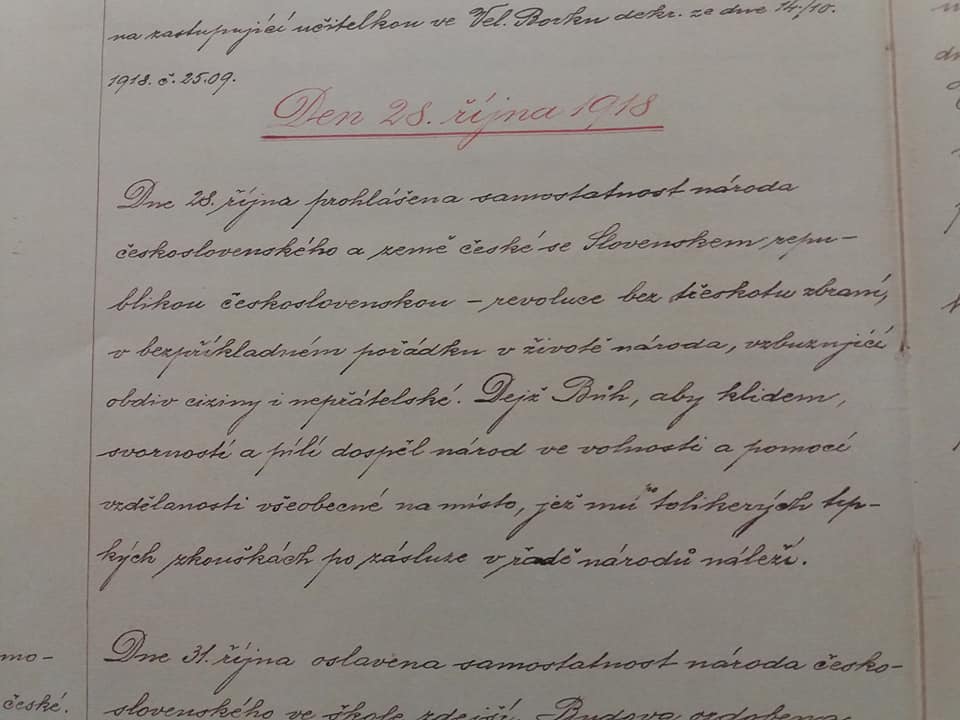 na zastupující učitelkou ve Vel. Borku dekr. ze dne 14./10.
1918. č. 2509.
Den 28. října 1918
Dne 28. října prohlášena samostatnost národa
československého a země české se Slovenskem repu-
blikou československou – revoluce bez třeskotu zbraní,
v bezpříkladném pořádku v životě národa, vzbuzující
obdiv ciziny i nepřátelské. Dejž Bůh, aby klidem,
svorností a pílí dospěl národ ve volnosti a pomocí
vzdělanosti všeobecné na místo, jež mu po tolikerých trp-
kých zkouškách po zásluze v řadě národů náleží.
Dne 31. října oslavena samostatnost národa česko-
mo-
slovenského ve škole zdejší. Budova ozdobena
české.